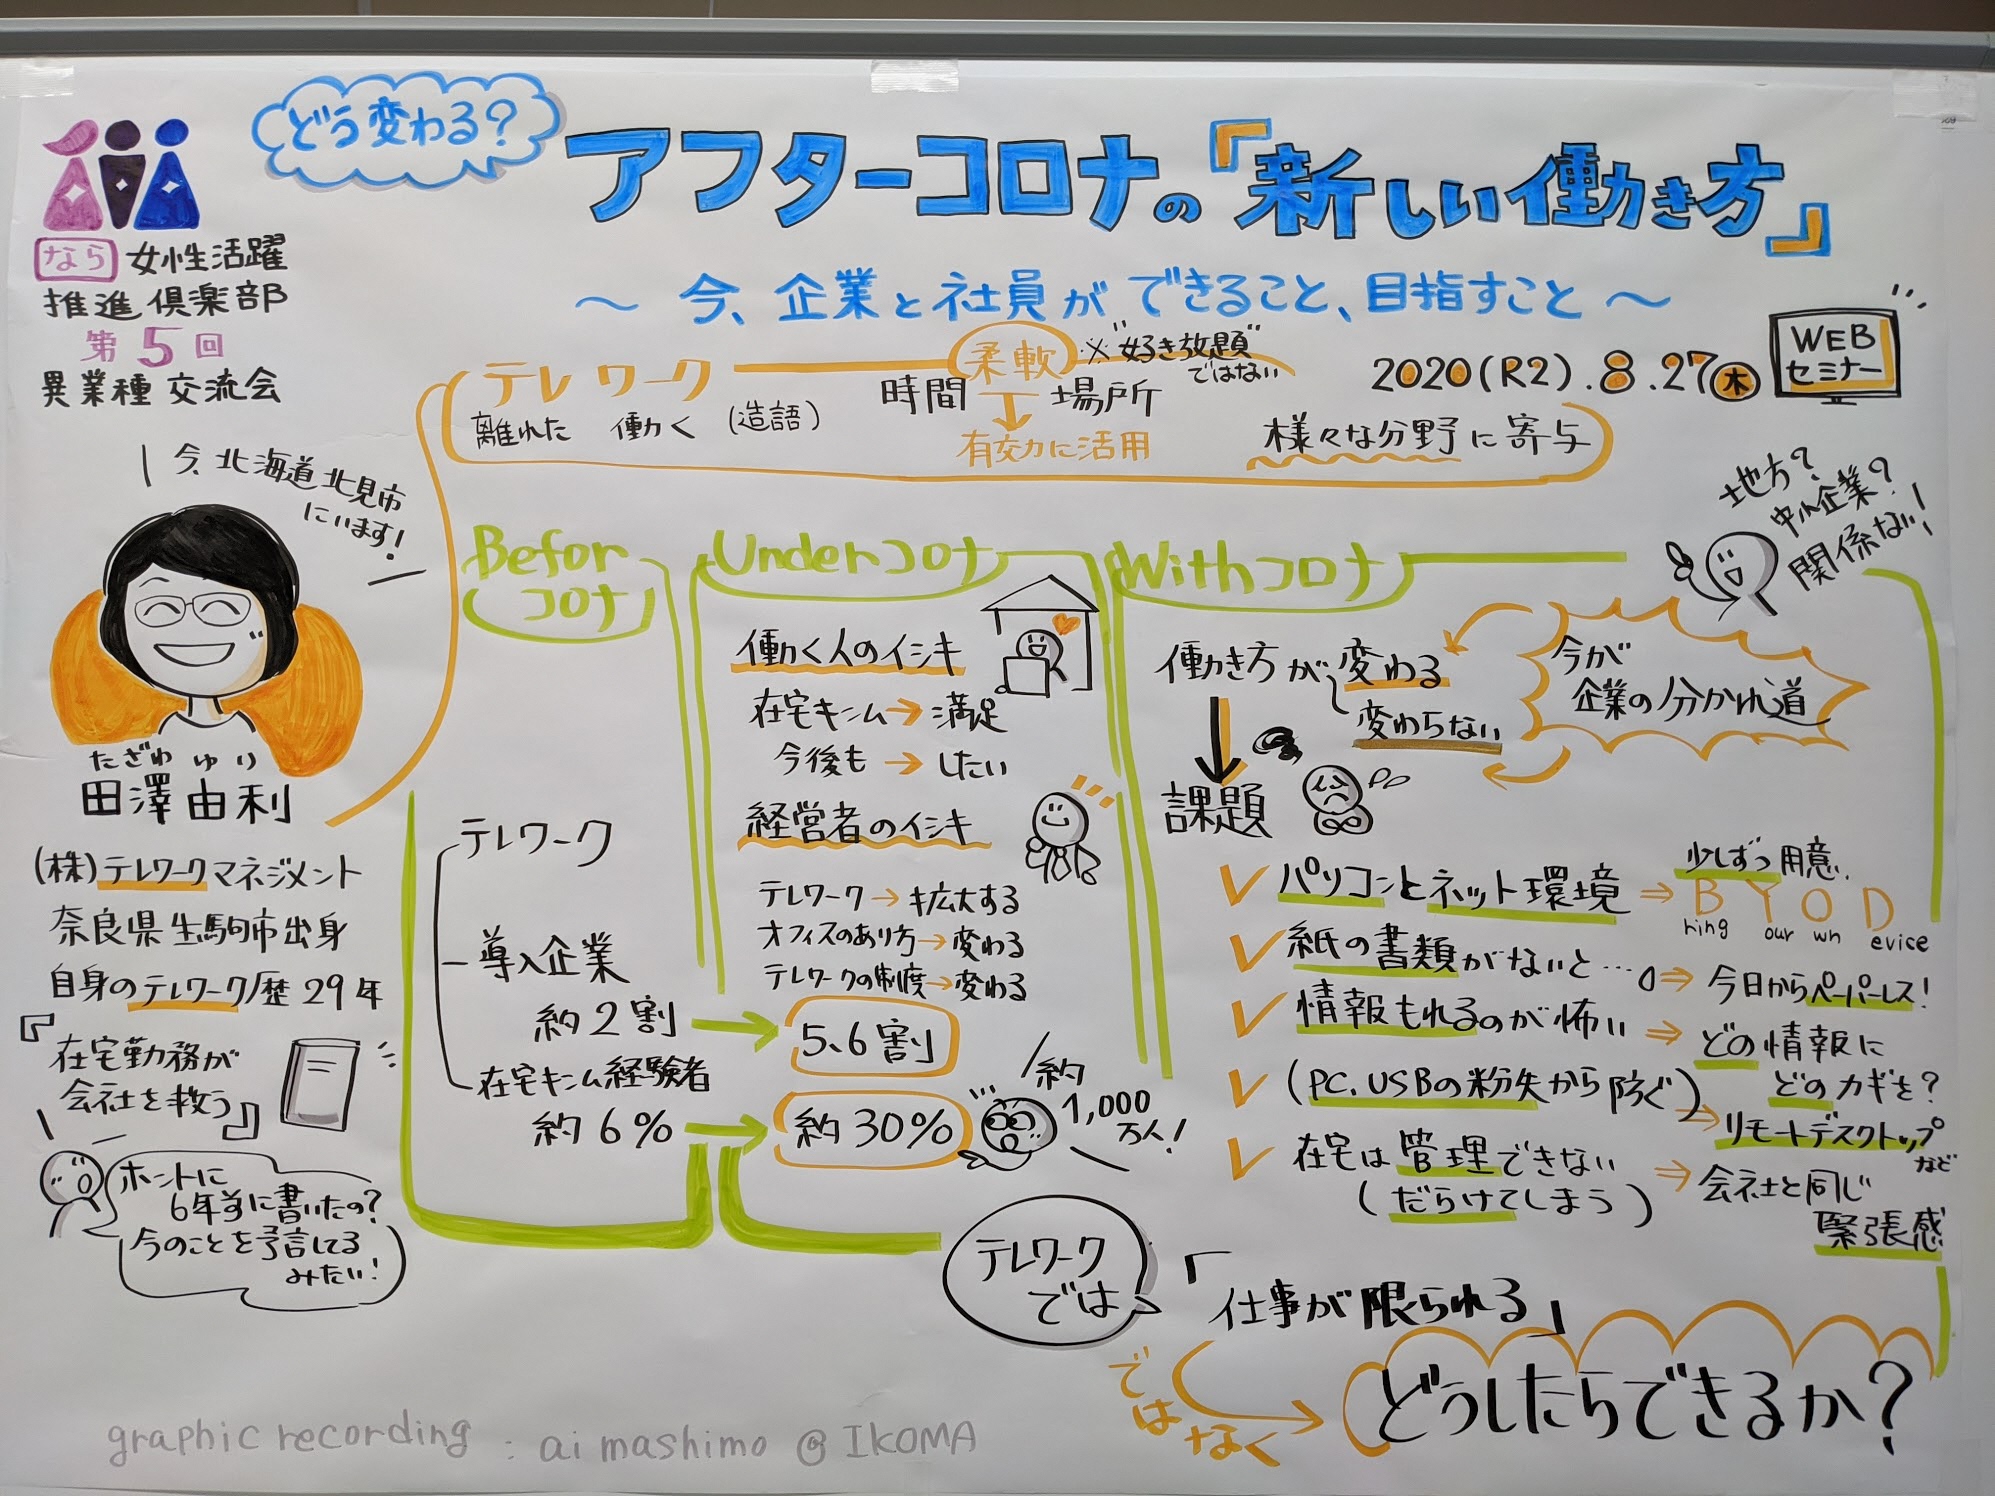 どう変わる?
アフターコロナの『新しい働き方』
～ 今、企業と社員ができること、目指すこと ～
なら 女性活躍
推進 倶楽部
第5回
異業種 交流会
2020(R2).8.27木
WEB
セミナー
テレワーク
離れた 働く (造語)
柔軟
※"好き放題"
ではない
時間 場所
有効に活用
様々な分野に寄与
今、北海道北見市
にいます!
たざわ ゆり
田澤 由利
(株)テレワークマネジメント
奈良県生駒市出身
自身のテレワーク歴 29年
『在宅勤務が
会社を救う』
ホントに
6年前に書いたの?
今のことを予言してる
みたい!
Befor
コロナ
テレワーク
導入企業
約2割
在宅キンム経験者
約6%
Underコロナ
働く人のイシキ
在宅キンム→満足
今後も→したい
経営者のイシキ
テレワーク→拡大する
オフィスのあり方→変わる
テレワークの制度→変わる
5、6割
約30%
約
1,000
万人!
Withコロナ
地方?
中小企業?
関係ない!
働き方が変わる
変わらない
今が
企業の分かれ道
課題
✓ パソコンとネット環境 ⇒
少しずつ用意
BYOD
ring our wn evice
✓ 紙の書類がないと…。⇒ 今日からペーパーレス!
✓ 情報もれるのが怖い ⇒ どの情報に
どのカギを?
✓ (PC、USBの紛失から防ぐ) ⇒ リモートデスクトップ
など
✓ 在宅は管理できない ⇒ 会社と同じ
(だらけてしまう) 緊張感
テレワーク
では
「仕事が限られる」
ではなく
どうしたらできるか?
graphic recording : ai mashimo @ IKOMA